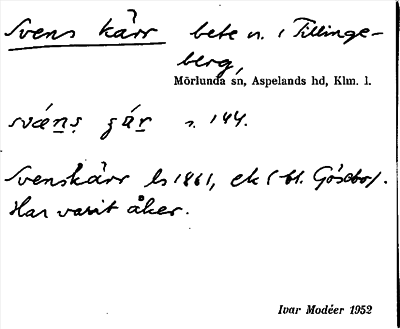 Svens kärr bete n. i Tillinge-
berg,
Mörlunda sn, Aspelands hd, Klm. l.
svæns çár s. 144.
Svenskärr ls 1861, ek (bl. Gösebo).
Har varit åker.
Ivar Modéer 1952